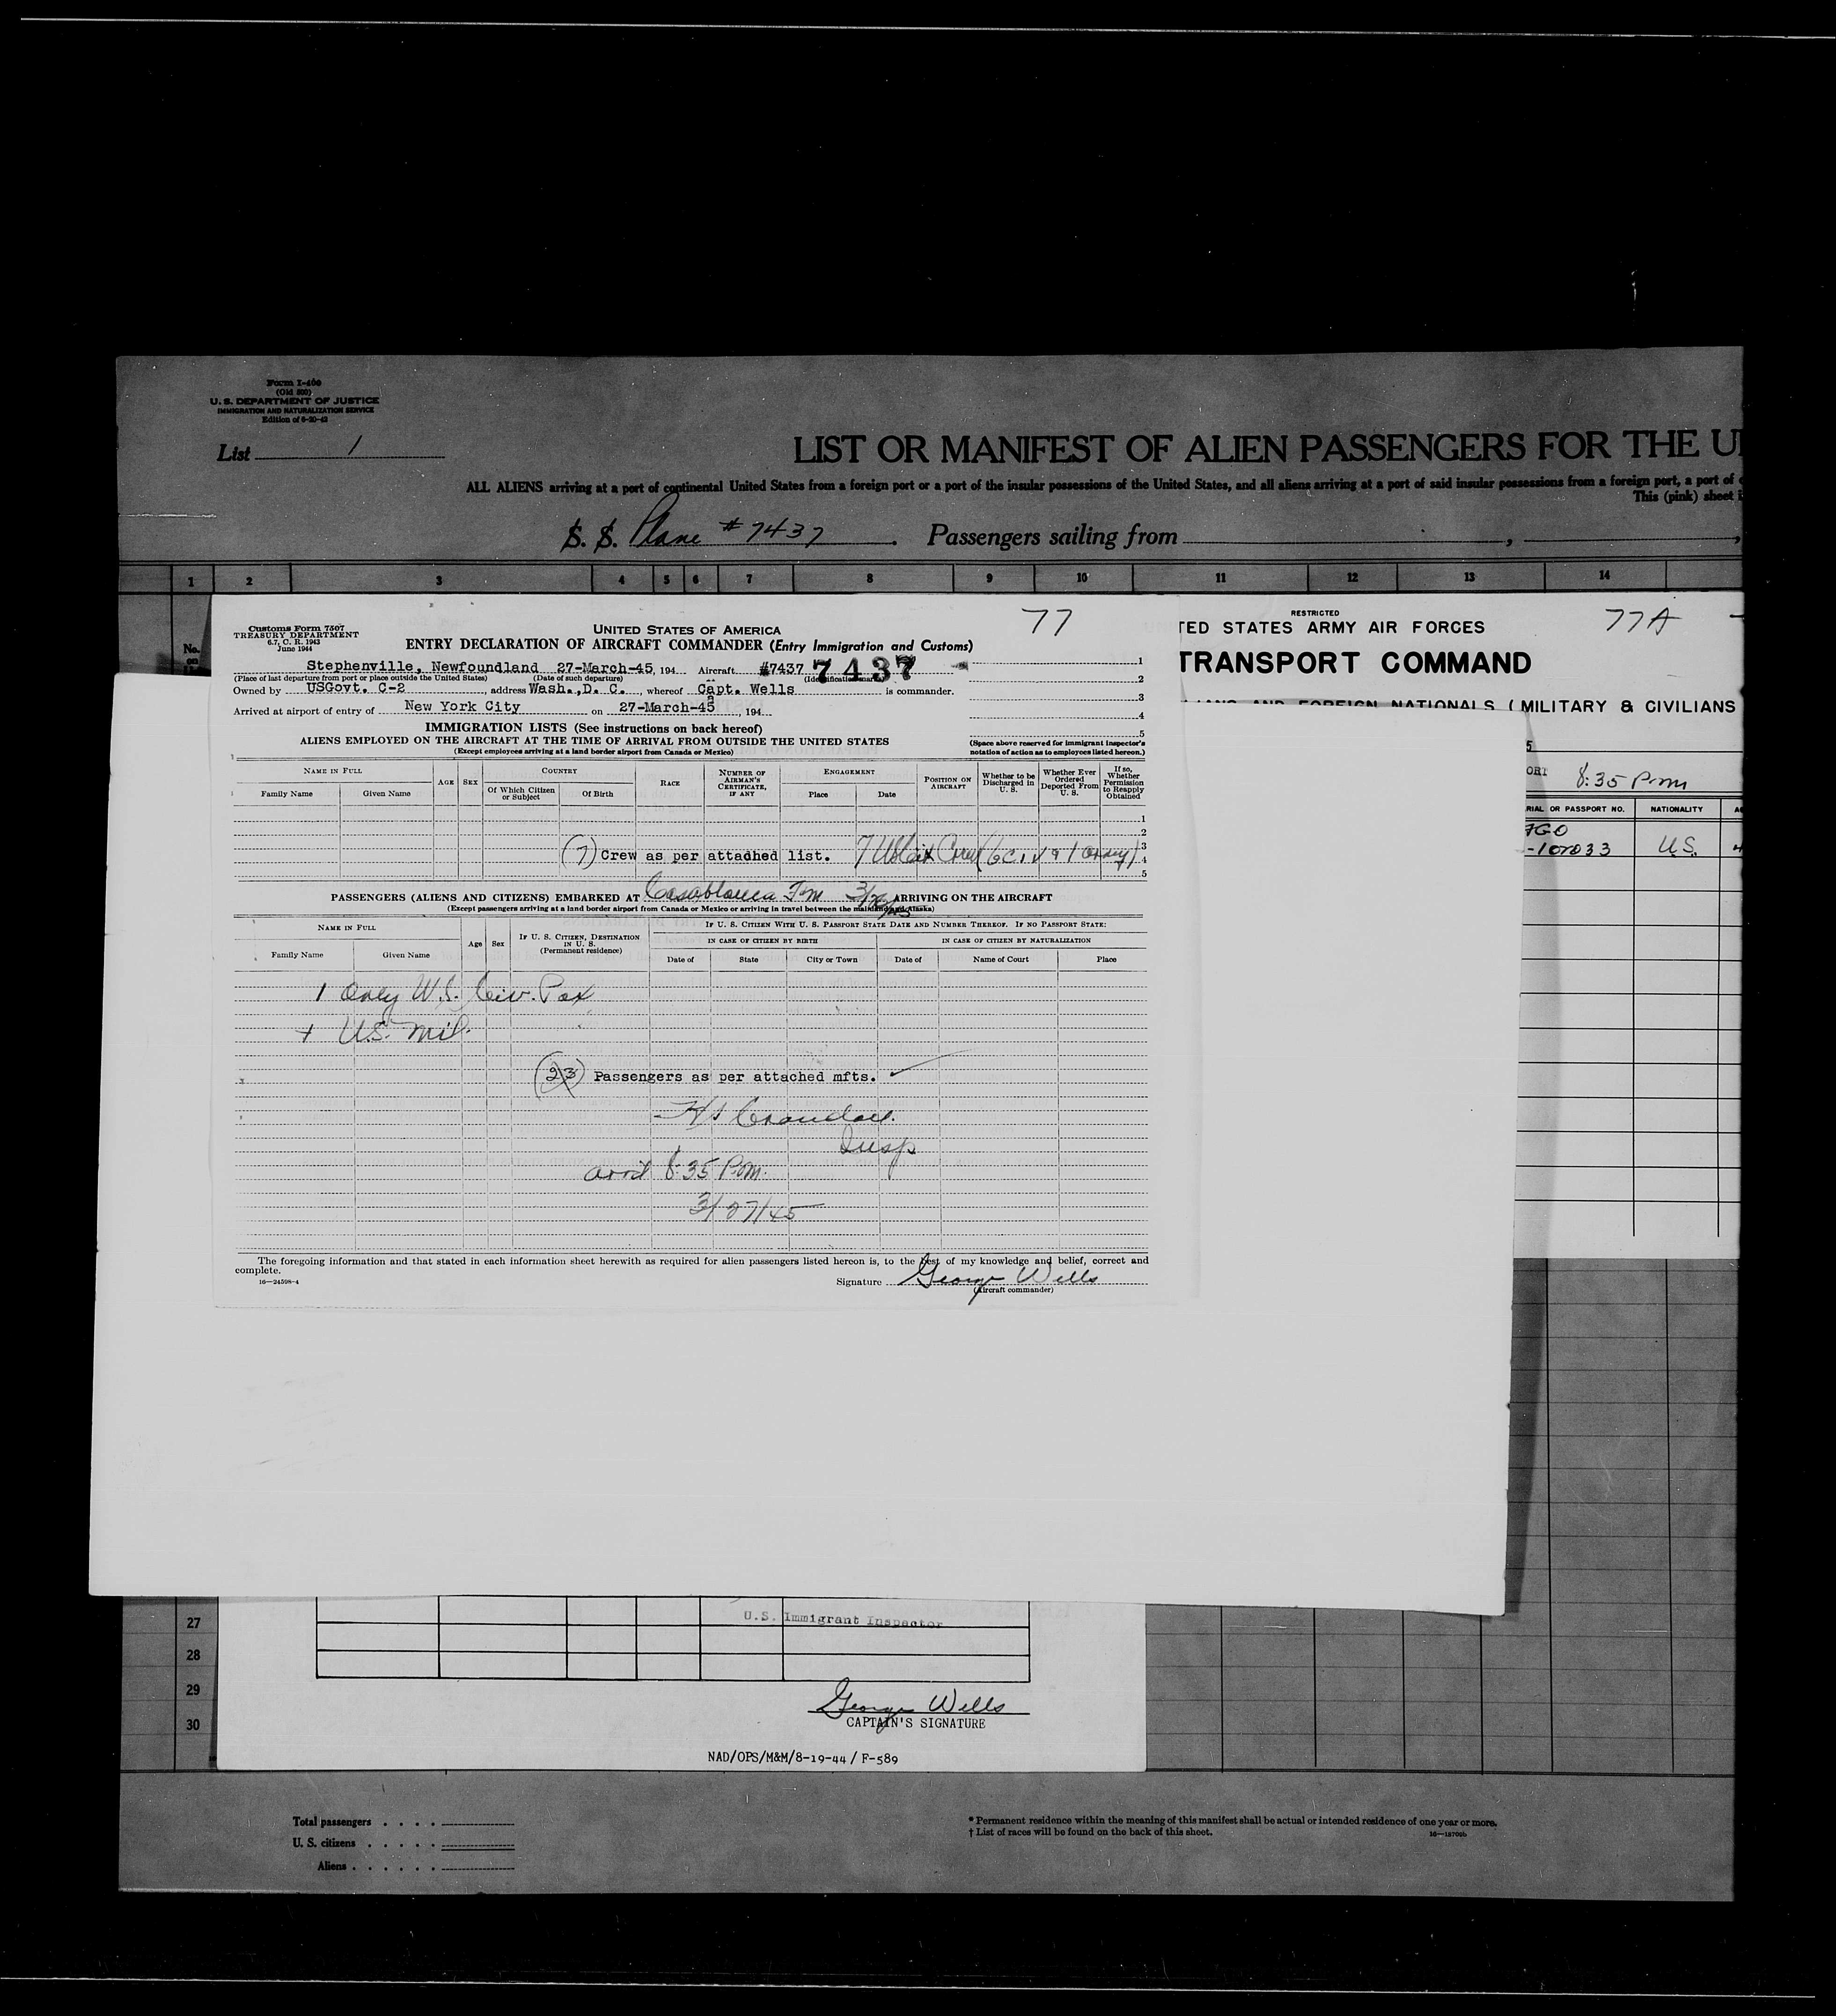 Form I-400
(Old 500)
U. S. DEPARTMENT OF JUSTICE
IMMIGRATION AND NATURALIZATION SERVICE
Edition of 6-20-42
List 1
LIST OR MANIFEST OF ALIEN PASSENGERS FOR THE U
ALL ALIENS arriving at a port of continental United States from a foreign port or a port of the insular possessions of the United States, and all aliens arriving at a port of said insular possessions from a foreign port, a port of
This (pink) sheet
S. S. Plane #7437. Passengers sailing from
1 2 3 4 5 6 7 8 9 10 11 12 13 14
No.
on
Customs Form 7507
TREASURY DEPARTMENT
6.7, C. R. 1943
June 1944
UNITED STATES OF AMERICA
77
ENTRY DECLARATION OF AIRCRAFT COMMANDER (Entry Immigration and Customs)
Stephenville, Newfoundland 27-March-45, 194 Aircraft #7437 7437
(Place of last departure from port or place outside the United States) (Date of such departure)
Owned by USGovt. C-2, address Wash.,D. C., whereof Capt. Wells is commander.
Arrived at airport of entry of New York City on 27-March-45, 194
1
2
3
4
5
IMMIGRATION LISTS (See instructions on back hereof)
ALIENS EMPLOYED ON THE AIRCRAFT AT THE TIME OF ARRIVAL FROM OUTSIDE THE UNITED STATES
(Except employees arriving at a land border airport from Canada or Mexico)
(Space above reserved for immigrant inspector's
notation of action as to employees listed hereon.)
NAME IN FULL
Family Name Given Name
AGE
SEX
COUNTRY
Of Which Citizen or Subject
Of Birth
RACE
NUMBER OF AIRMAN'S CERTIFICATE, IF ANY
ENGAGEMENT
Place Date
POSITION ON AIRCRAFT
Whether to be Discharged in U. S.
Whether Ever Ordered Deported From U. S.
If so, Whether Permission to Reapply Obtained
1
2
3
4
5
(7) Crew as per attached list. 7
PASSENGERS (ALIENS AND CITIZENS) EMBARKED AT Casablanca F.M ARRIVING ON THE AIRCRAFT
(Except passengers arriving at a land border airport from Canada or Mexico or arriving in travel between the mainland and Alaska)
NAME IN FULL
Family Name Given Name
Age
Sex
IF U. S. CITIZEN, DESTINATION IN U. S.
(Permanent residence)
IF U. S. CITIZEN WITH U. S. PASSPORT STATE DATE AND NUMBER THEREOF. IF NO PASSPORT STATE:
IN CASE OF CITIZEN BY BIRTH
Date of State City or Town
IN CASE OF CITIZEN BY NATURALIZATION
Date of Name of Court Place
1 Only U.S. Civ. Pax
+ U.S. Mil.
(23) Passengers as per attached mfts.
Crandall
Insp
arrd 8:35 P.m.
3/27/45
The foregoing information and that stated in each information sheet herewith as required for alien passengers listed hereon is, to the best of my knowledge and belief, correct and
complete.
16—24598-4
Signature George Wells
(Aircraft commander)
RESTRICTED
77A
TED STATES ARMY AIR FORCES
TRANSPORT COMMAND
AND FOREIGN NATIONALS (MILITARY & CIVILIANS
5
ORT 8:35 P.m
RIAL OR PASSPORT NO. NATIONALITY
AGO
-101033 U.S.
27
28
29
30
U.S. Immigrant Inspector
George Wells
CAPTAIN'S SIGNATURE
NAD/OPS/M&M/8-19-44 / F-589
Total passengers
U. S. citizens
Aliens
* Permanent residence within the meaning of this manifest shall be actual or intended residence of one year or more.
† List of races will be found on the back of this sheet.